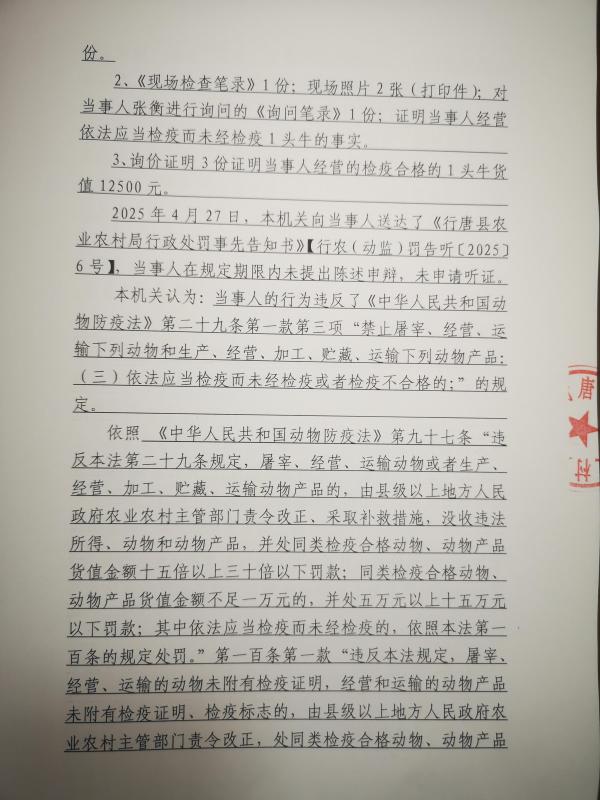 份。
2、《现场检查笔录》1份；现场照片2张（打印件）；对
当事人张衡进行询问的《询问笔录》1份；证明当事人经营
依法应当检疫而未经检疫1头牛的事实。
3、询价证明3份证明当事人经营的检疫合格的1头牛货
值12500元。
2025年4月27日，本机关向当事人送达了《行唐县农
业农村局行政处罚事先告知书》【行农（动监）罚告听〔2025〕
6号】，当事人在规定期限内未提出陈述申辩，未申请听证。
本机关认为：当事人的行为违反了《中华人民共和国动
物防疫法》第二十九条第一款第三项“禁止屠宰、经营、运
输下列动物和生产、经营、加工、贮藏、运输下列动物产品：
（三）依法应当检疫而未经检疫或者检疫不合格的；”的规
定。
依照 《中华人民共和国动物防疫法》第九十七条“违
反本法第二十九条规定，屠宰、经营、运输动物或者生产、
经营、加工、贮藏、运输动物产品的，由县级以上地方人民
政府农业农村主管部门责令改正、采取补救措施，没收违法
所得、动物和动物产品，并处同类检疫合格动物、动物产品
货值金额十五倍以上三十倍以下罚款；同类检疫合格动物、
动物产品货值金额不足一万元的，并处五万元以上十五万元
以下罚款；其中依法应当检疫而未经检疫的，依照本法第一
百条的规定处罚。”第一百条第一款“违反本法规定，屠宰、
经营、运输的动物未附有检疫证明，经营和运输的动物产品
未附有检疫证明、检疫标志的，由县级以上地方人民政府农
业农村主管部门责令改正，处同类检疫合格动物、动物产品
唐
村